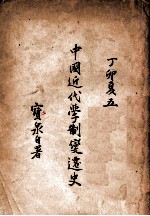 丁卯夏五
中國近代學制變遷史
寶泉自署